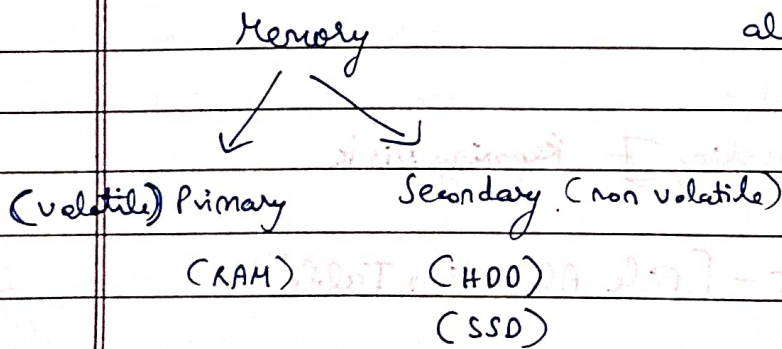 Memory al
(volatile) Primary Secondary (non volatile)
(RAM) (HDD)
(SSD)